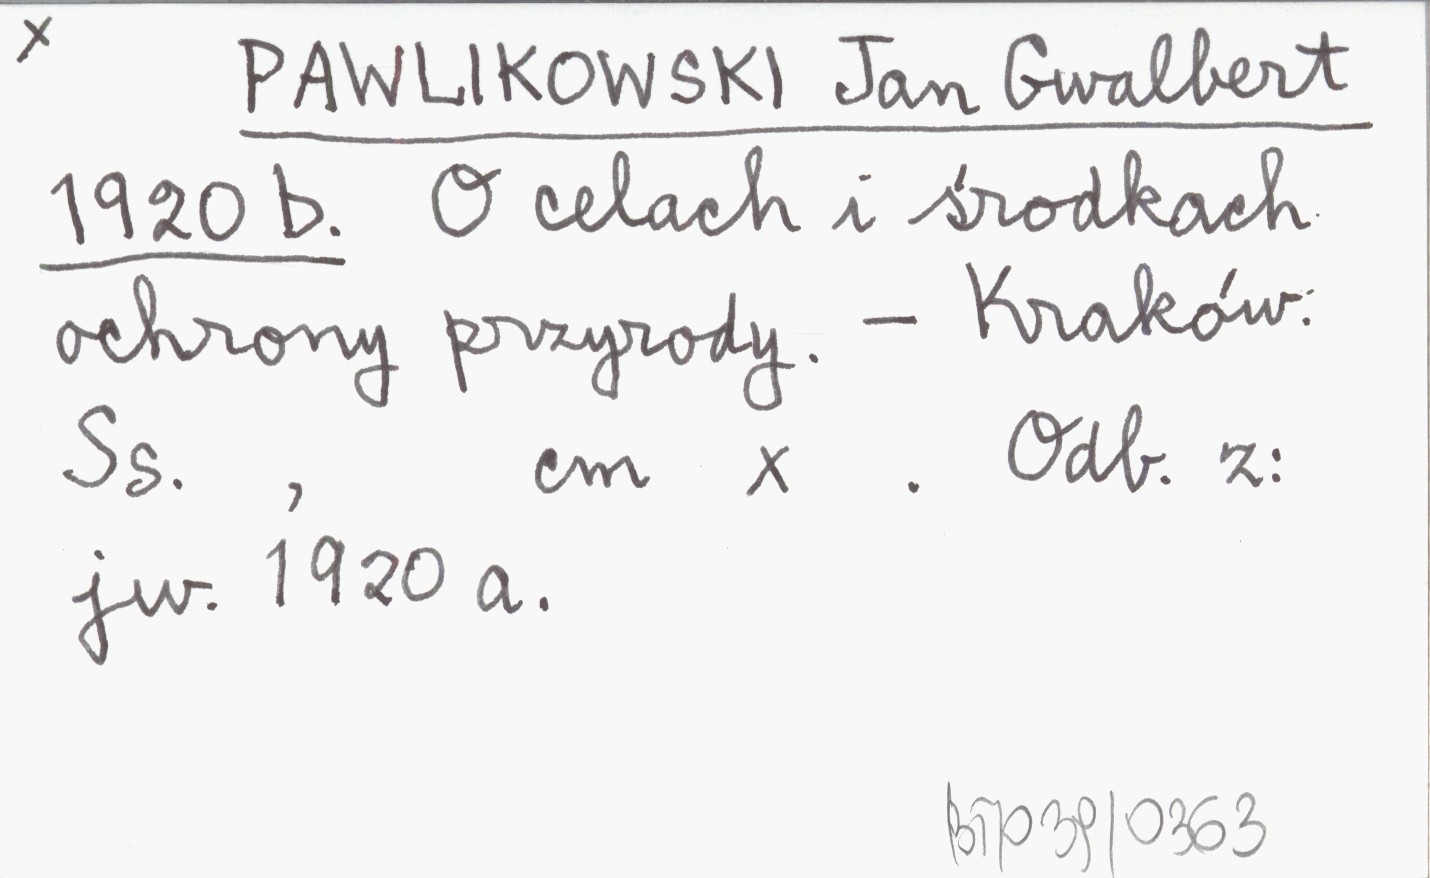 x
PAWLIKOWSKI Jan Gwalbert
1920 b. O celach i środkach
ochrony przyrody. – Kraków:
Ss. , cm x . Odb. z:
jw. 1920 a.
0363